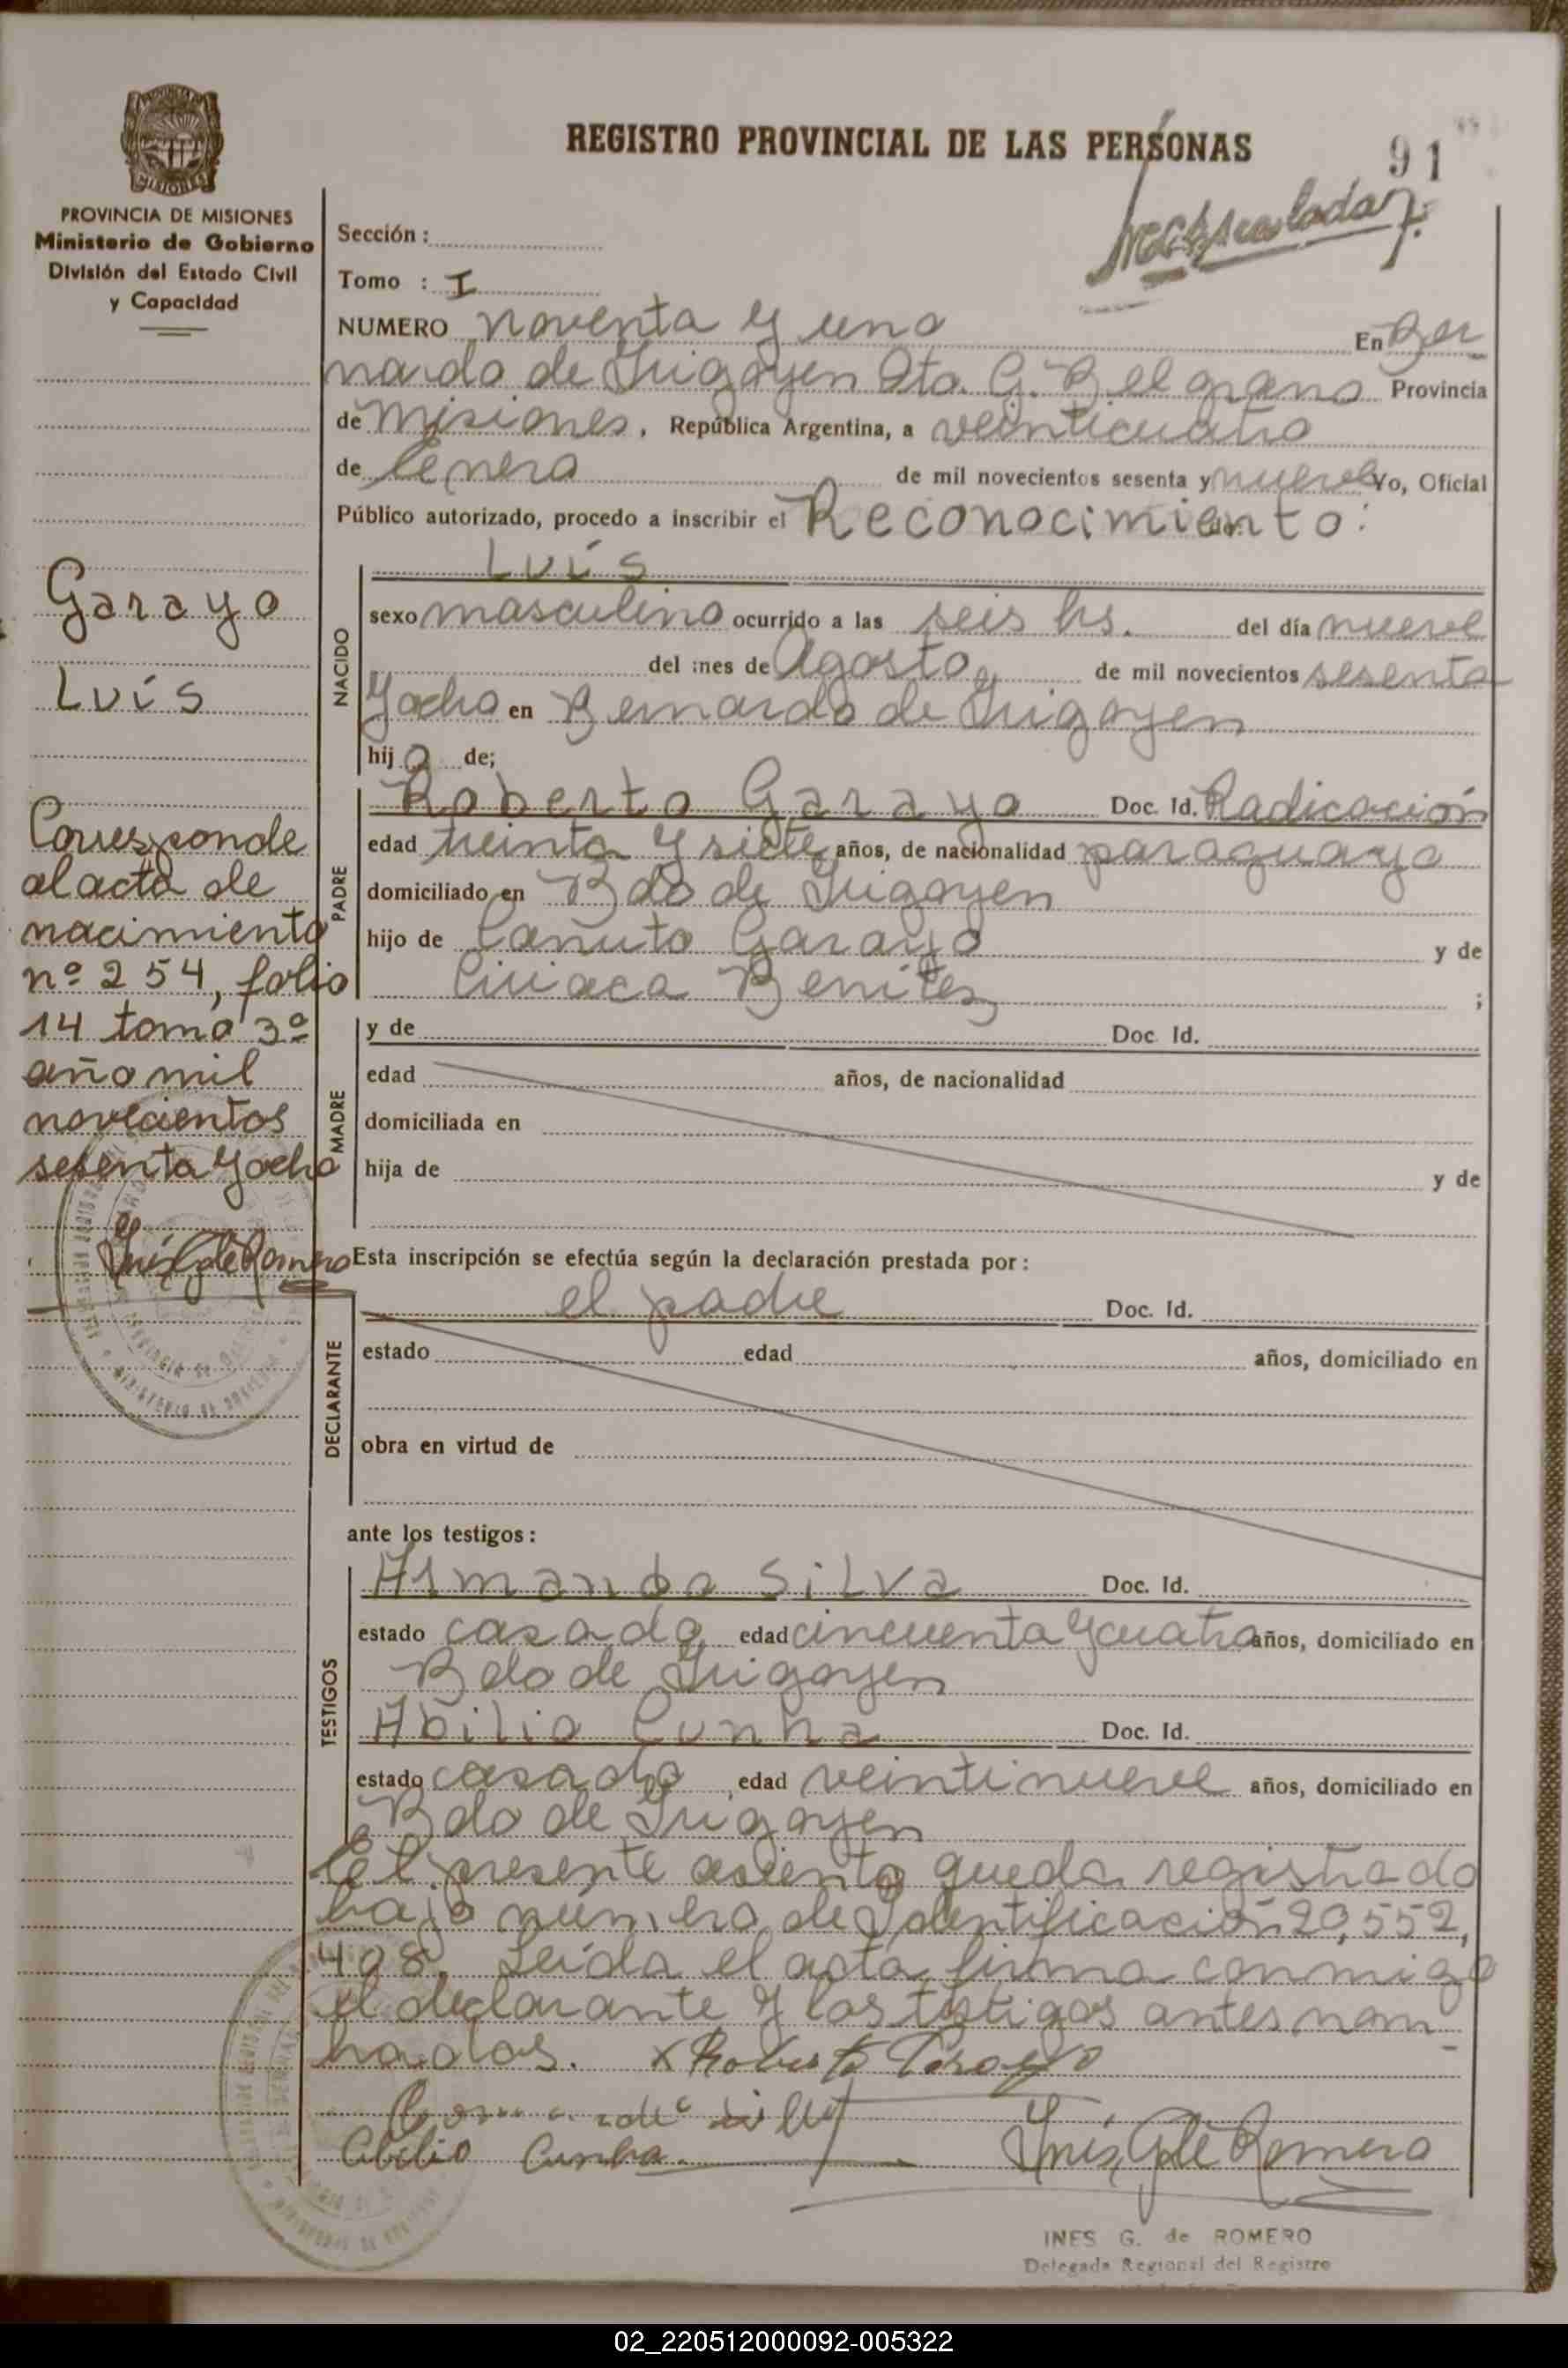 REGISTRO PROVINCIAL DE LAS PERSONAS
91
PROVINCIA DE MISIONES
Ministerio de Gobierno
División del Estado Civil
y Capacidad
Sección :
Tomo : I
NUMERO noventa y uno En Ber
nardo de Irigoyen Dto. G. Belgrano Provincia
de Misiones, República Argentina, a veinticuatro
de Enero de mil novecientos sesenta y nueve Yo, Oficial
Público autorizado, procedo a inscribir el Reconocimiento:
Luis
sexo masculino ocurrido a las seis hs. del día nueve
del mes de Agosto de mil novecientos sesenta
y ocho en Bernardo de Irigoyen
hij o de;
NACIDO
Garayo
Luis
Roberto Garayo Doc. Id. Radicación
edad treinta y siete años, de nacionalidad paraguayo
domiciliado en Bdo de Irigoyen
hijo de Canuto Garayo y de
Ciriaca Benítez ;
PADRE
Corresponde
al acta de
nacimiento
nº 254, folio
14 tomo 3º
año mil
novecientos
sesenta y ocho
Inés G de Romero
y de Doc. Id.
edad años, de nacionalidad
domiciliada en
hija de y de
MADRE
Esta inscripción se efectúa según la declaración prestada por :
el padre Doc. Id.
estado edad años, domiciliado en
obra en virtud de
DECLARANTE
ante los testigos :
Armando Silva Doc. Id.
estado casado edad cincuenta y cuatro años, domiciliado en
Bdo de Irigoyen
Abilio Cunha Doc. Id.
estado casado, edad veintinueve años, domiciliado en
Bdo de Irigoyen
TESTIGOS
El presente asiento queda registrado
bajo número de Identificación 20,552,
408. Leída el acta, firma conmigo
el declarante y los testigos antes nom
brados. x Roberto Garayo
Abilio Cunha
Inés G de Romero
INES G. de ROMERO
Delegada Regional del Registro
02_220512000092-005322